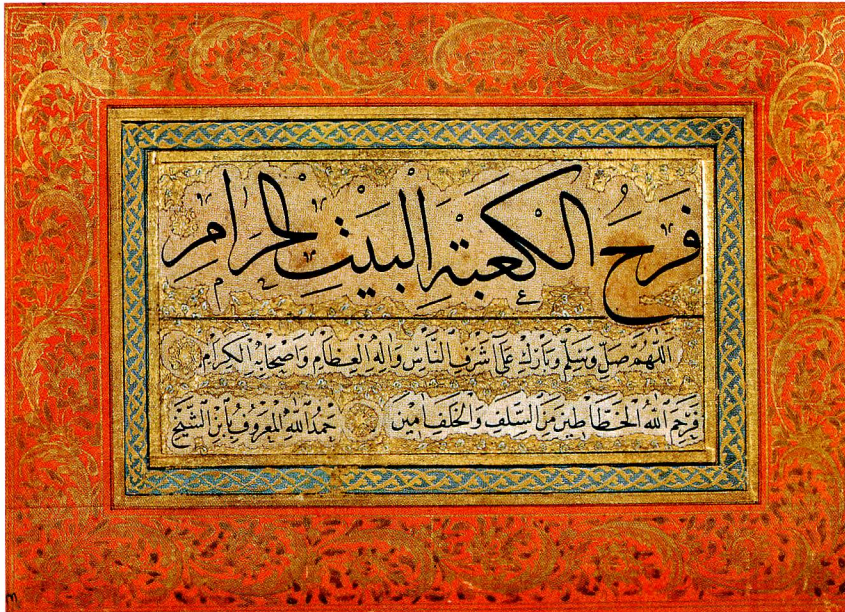 فَرَحُ الكَعْبَتِه البَيْتِ الحرَامِ
اَللّٰهُمَّ صَلِّ وَسَلِّمْ وَبَارِكْ عَلَى اَشْرَفِ النَّاسِ وَاٰلِهِ الْعِظَامِ وَاَصْحَابِهِ الْكِرَامِ
فَرَحِمَ اللّٰهُ الْخَطَّاطِينَ مِنَ السَّلَفِ وَالْخَلَفِ اٰمِينَ حَمْدُاللّٰهِ الْمَعْرُوفُ بِابْنِ الشَّيْخِ